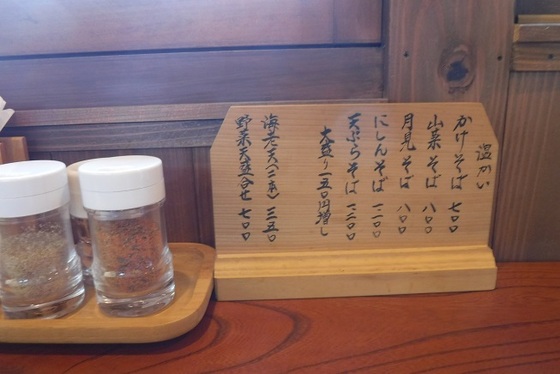 温かい
かけそば 七〇〇
山菜そば 八〇〇
月見そば 八〇〇
にしんそば 一一〇〇
天ぷらそば 一二〇〇
大盛り一五〇円増し
海老天(二本) 三五〇
野菜天盛合せ 七〇〇